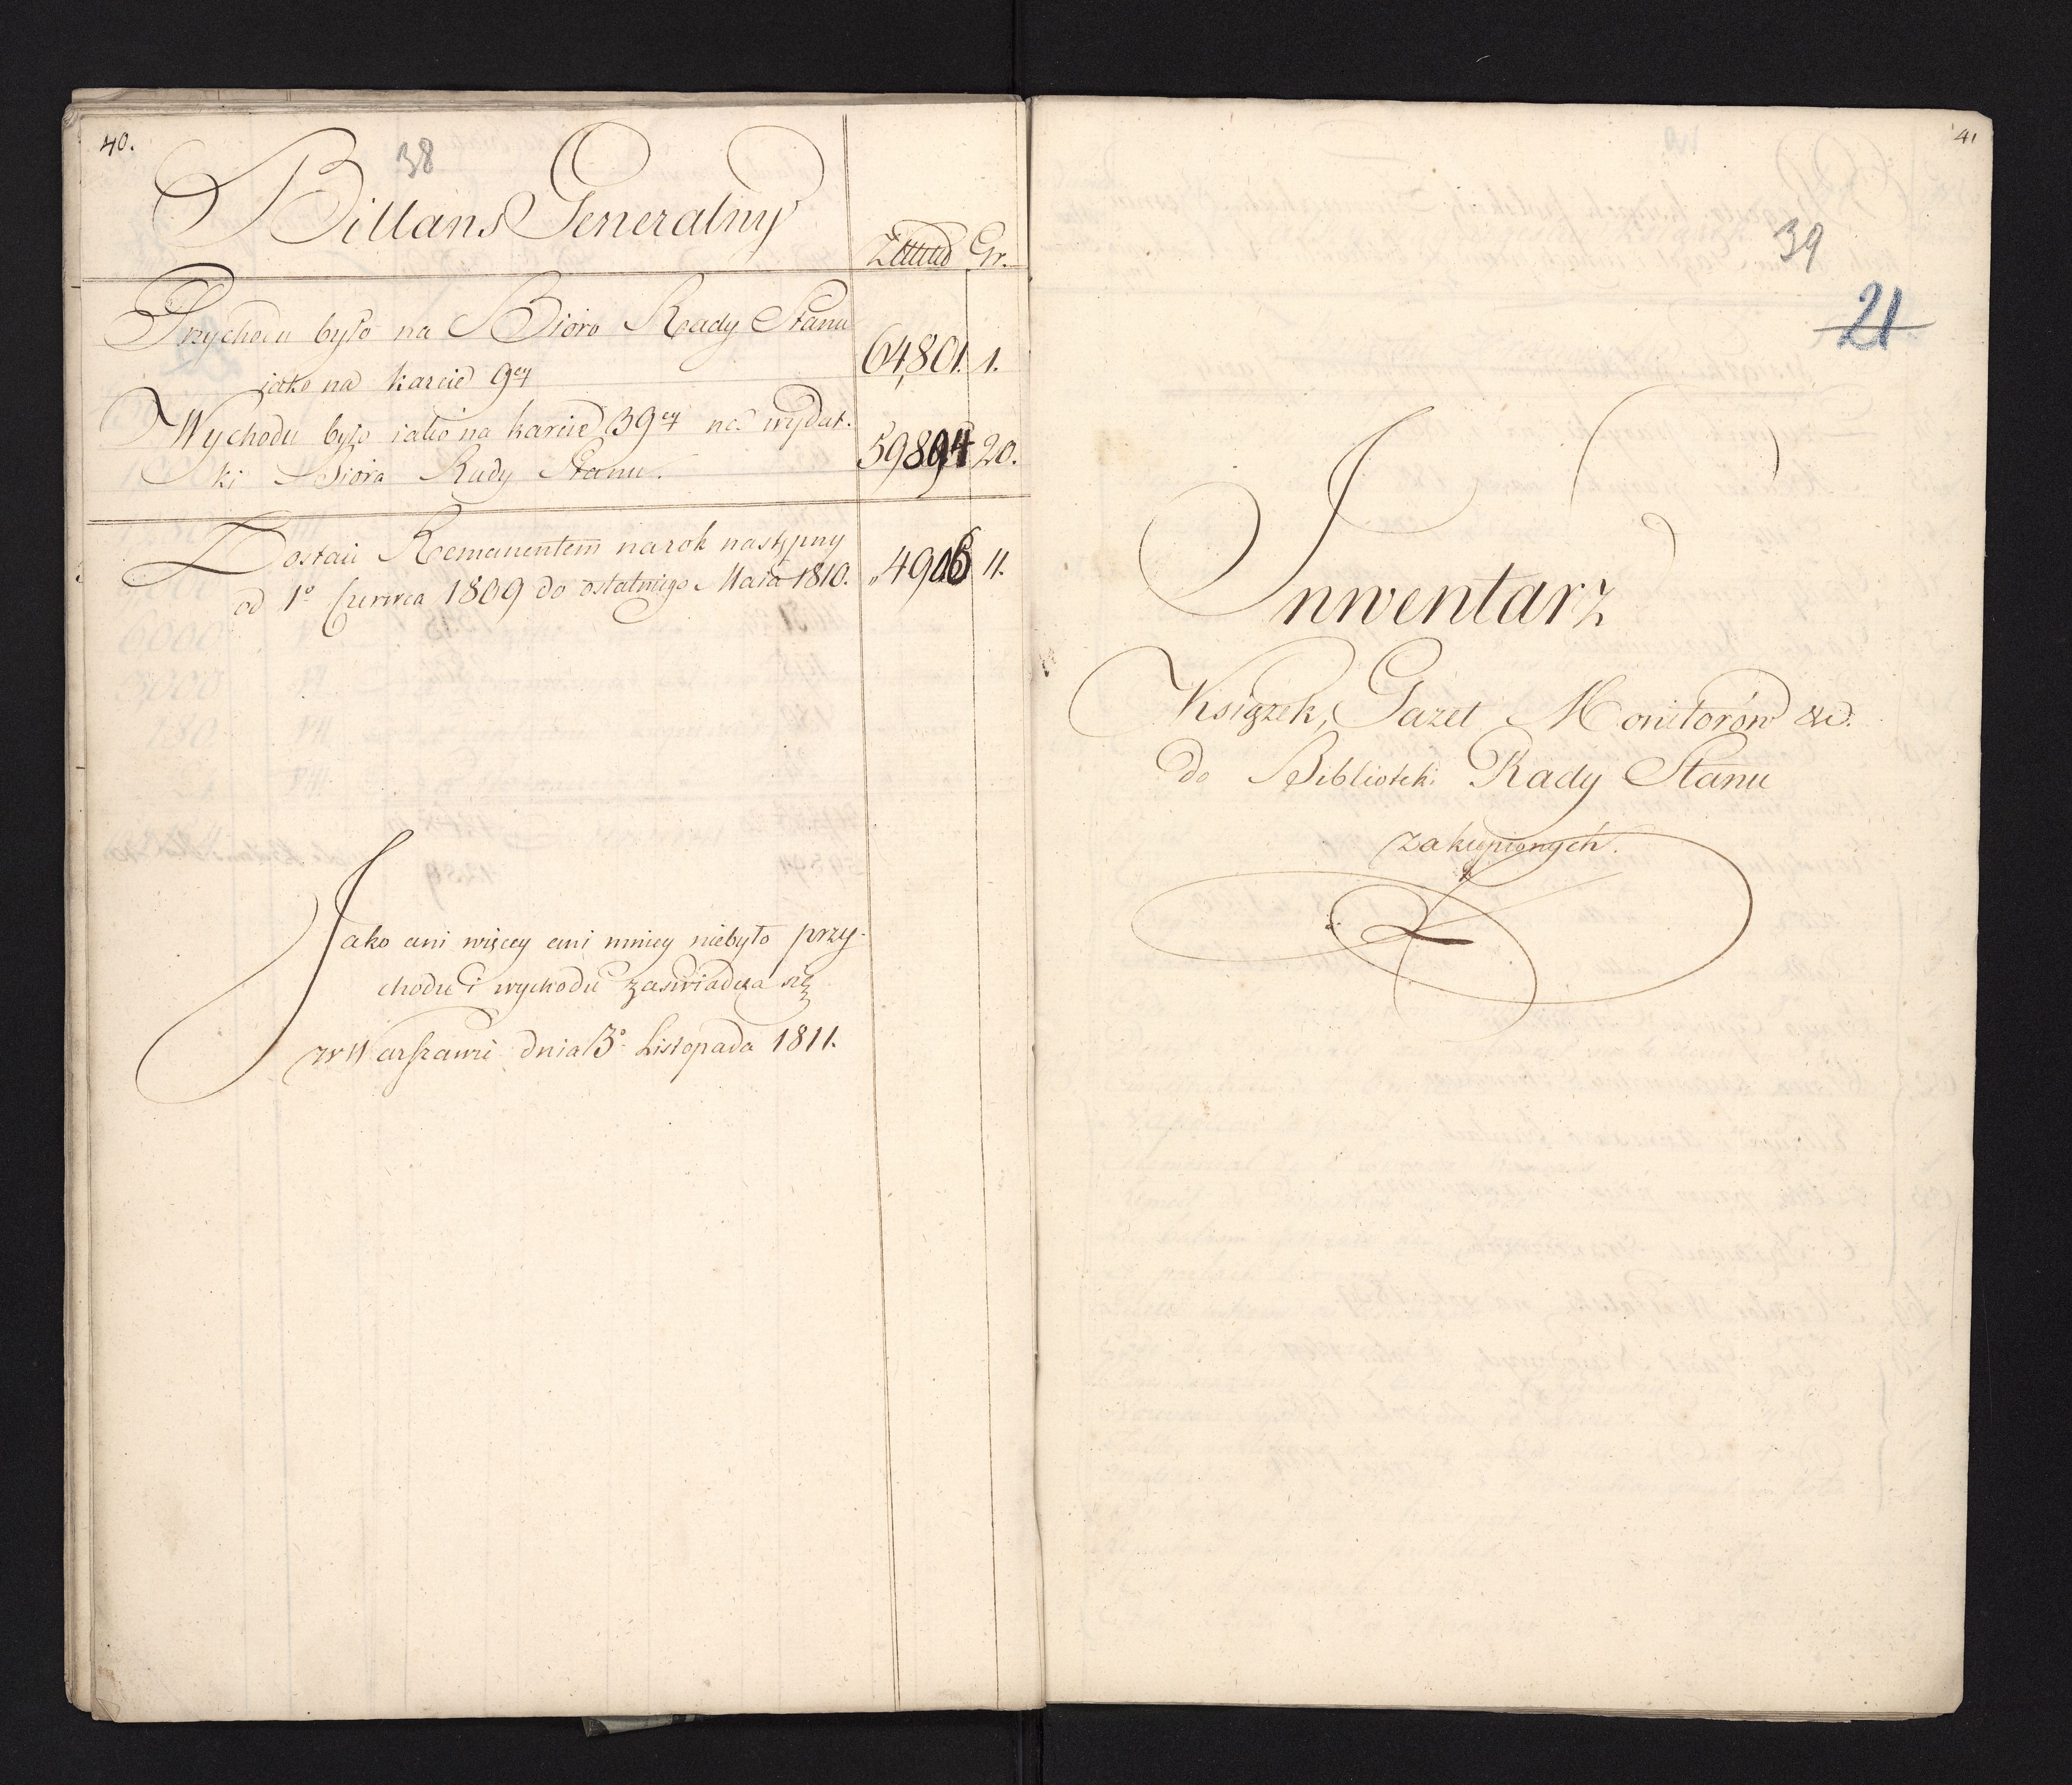 40.
38
Billans Generalny
Złłtud Gr.
Przychodu było na Bióro Rady Stanu
jako na karcie 9ey 64,801. 1.
Wychodu było iako na karcie 39ey na wydat-
ki Bióra Rady Stanu. 59894 20.
Zostaie Remanentem na rok następny
od 1o Czerwca 1809 do ostatniego Maia 1810. „4906 11.
Jako ani więcey ani mniey niebyło przy-
chodu i wychodu zaświadcza się
w Warszawie dnia 3o Listopada 1811.
41
39
21
Inwentarz
Książek, Gazet Monitorów &c.
do Biblioteki Rady Stanu
zakupionych.